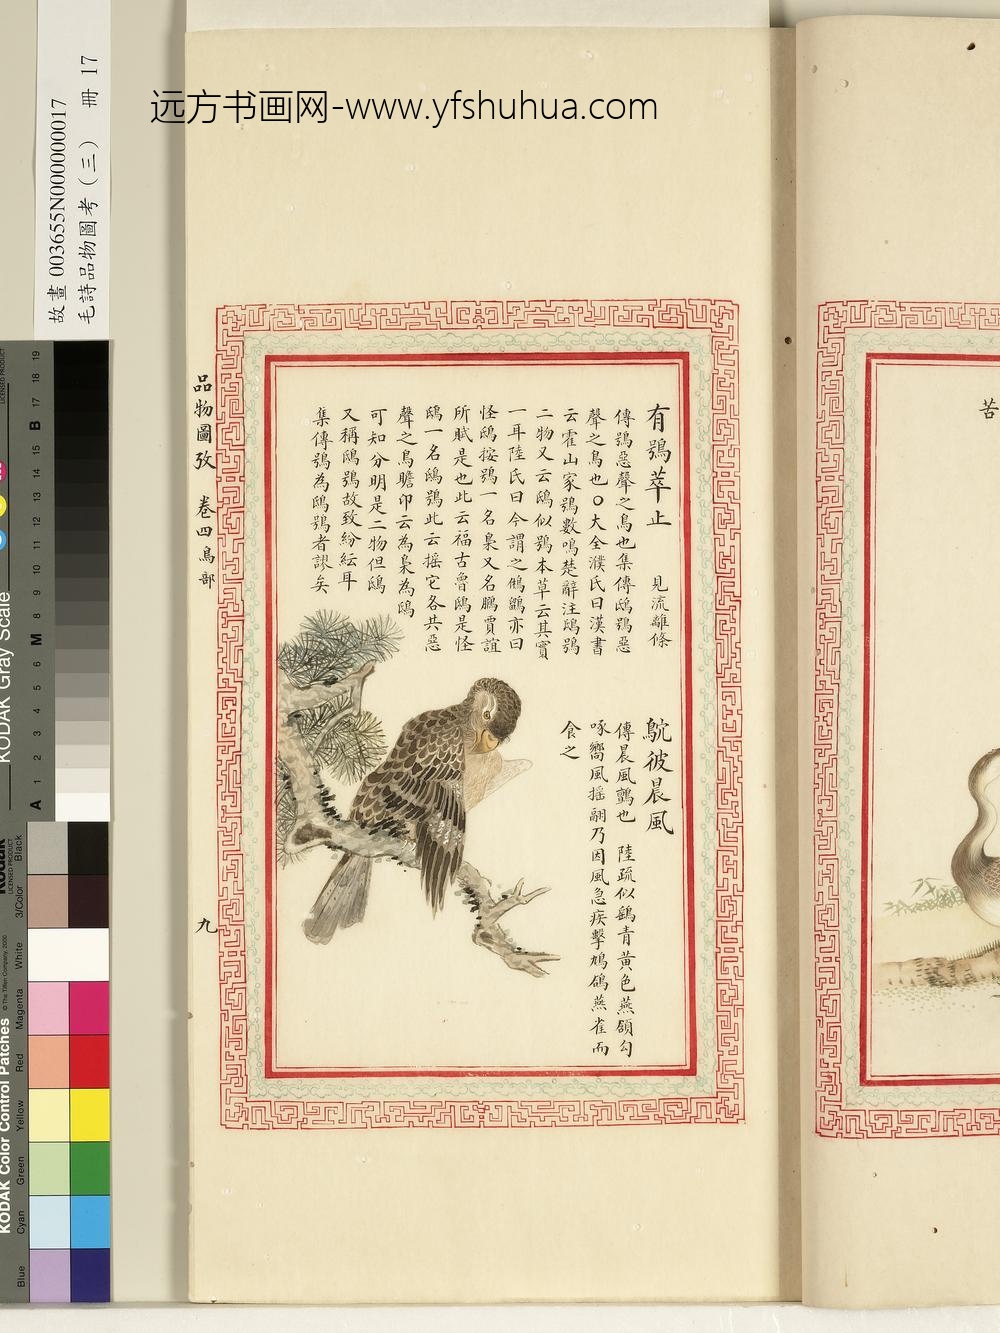 远方书画网-www.yfshuhua.com
故畫 003655N000000017
毛詩品物圖考（三） 冊 17
有鴞萃止 見流離條
傳鴞惡聲之鳥也集傳鴟鴞惡
聲之鳥也○大全濮氏曰漢書
云霍山家鴞數鳴楚辭注鴟鴞
二物又云鴟似鴞本草云其實
一耳陸氏曰今謂之鵂鶹亦曰
怪鴟按鴞一名梟又名鵩賈誼
所賦是也此云福古魯鴟是怪
鴟一名鴟鴞此云摇它各共惡
聲之鳥瞻卬云為梟為鴟
可知分明是二物但鴟
又稱鴟鴞故致紛紜耳
集傳鴞為鴟鴞者謬矣
鴥彼晨風
傳晨風鸇也 陸疏似鷂青黄色燕頷勾
啄嚮風摇翮乃因風急疾擊鳩鴿燕雀而
食之
品物圖攷 卷四鳥部 九
苦
KODAK Gray Scale
A 1 2 3 4 5 6 M 8 9 10 11 12 13 14 15 B 17 18 19
LICENSED PRODUCT
KODAK Color Control Patches
© The Tiffen Company, 2000
Kodak
LICENSED PRODUCT
Blue Cyan Green Yellow Red Magenta White 3/Color Black